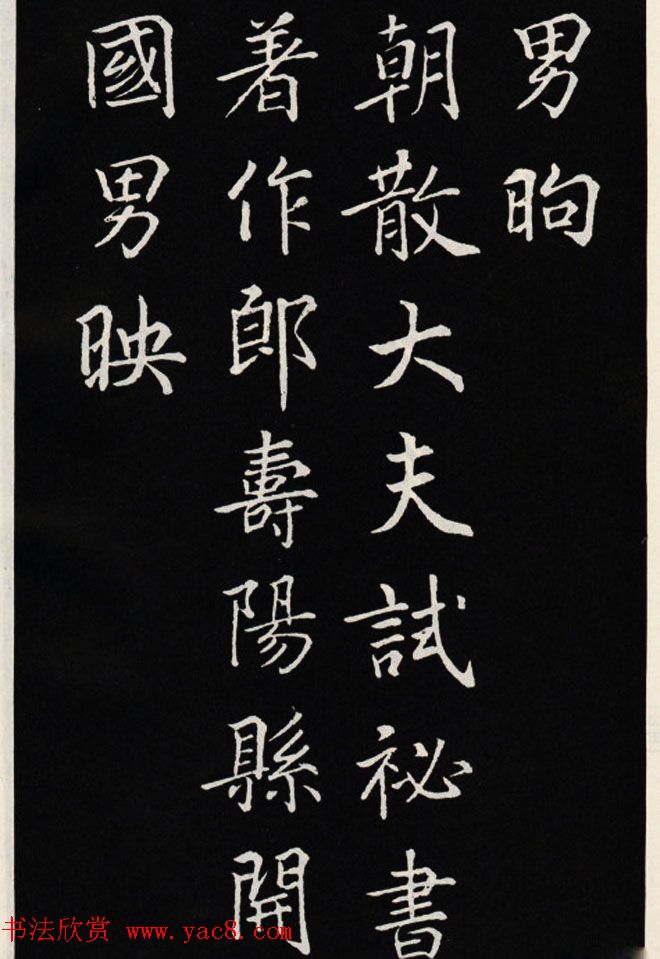 男昫
朝散大夫試祕書
著作郎壽陽縣開
國男映
书法欣赏 www.yac8.com